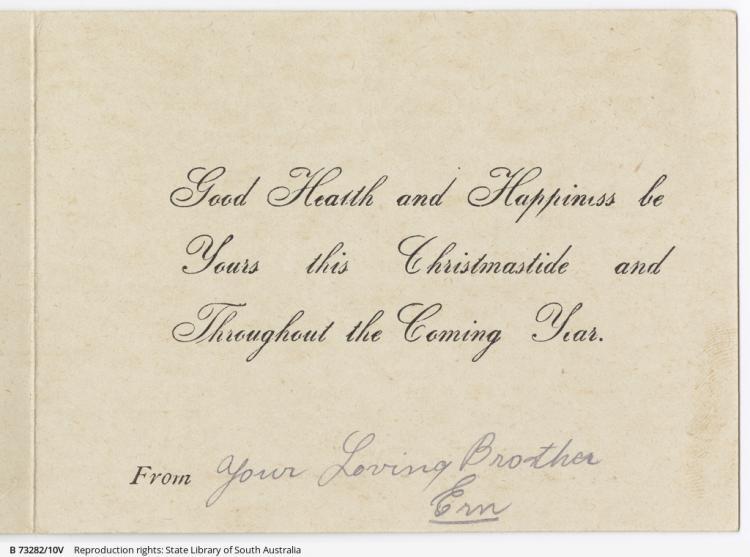 Good Health and Happiness be
Yours this Christmastide and
Throughout the Coming Year.
From Your Loving Brother
Ern
B 73282/10V Reproduction rights: State Library of South Australia